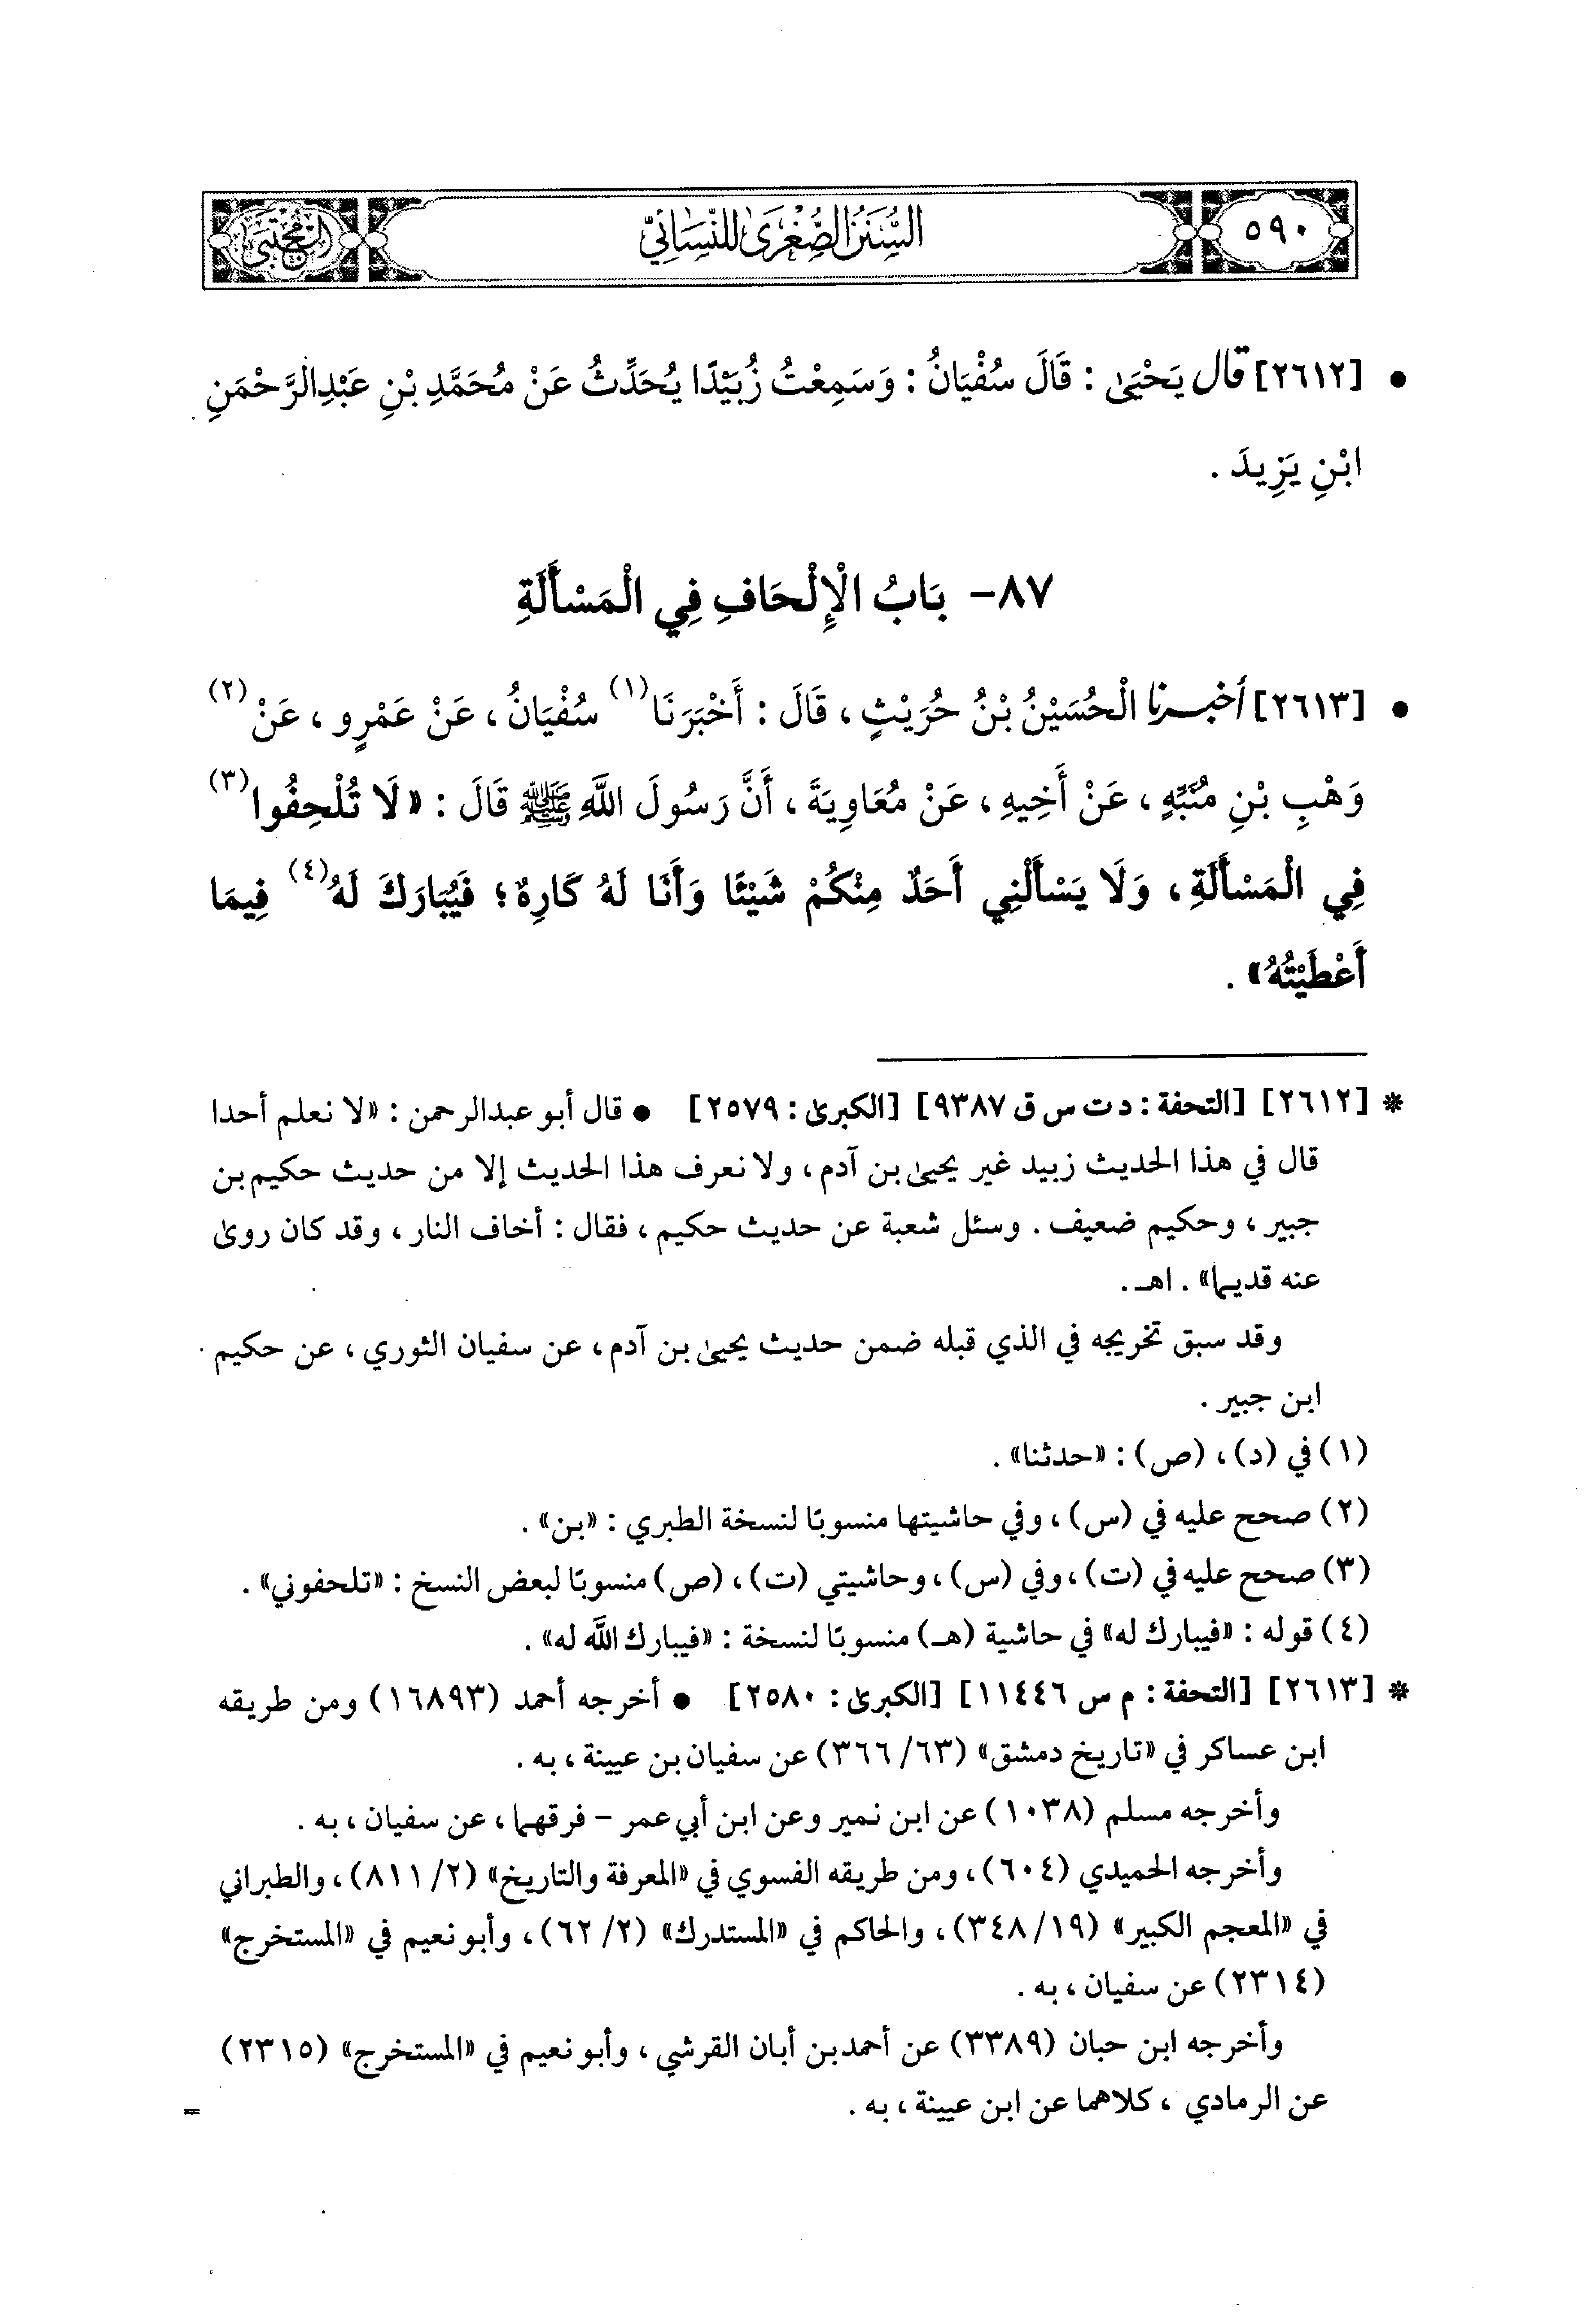 ٥٩٠
السُّنَنُ الصُّغْرَىٰ لِلنَّسَائِيِّ
المجتبى
• [٢٦١٢] قال يَحْيَىٰ : قَالَ سُفْيَانُ : وَسَمِعْتُ زُبَيْدًا يُحَدِّثُ عَنْ مُحَمَّدِ بْنِ عَبْدِالرَّحْمَنِ
ابْنِ يَزِيدَ .
٨٧- بَابُ الْإِلْحَافِ فِي الْمَسْأَلَةِ
• [٢٦١٣] أخبرنا الْحُسَيْنُ بْنُ حُرَيْثٍ ، قَالَ : أَخْبَرَنَا(١) سُفْيَانُ ، عَنْ عَمْرٍو ، عَنْ(٢)
وَهْبِ بْنِ مُنَبِّهٍ ، عَنْ أَخِيهِ ، عَنْ مُعَاوِيَةَ ، أَنَّ رَسُولَ اللَّهِ ﷺ قَالَ : «لَا تُلْحِفُوا(٣)
فِي الْمَسْأَلَةِ ، وَلَا يَسْأَلْنِي أَحَدٌ مِنْكُمْ شَيْئًا وَأَنَا لَهُ كَارِهٌ ؛ فَيُبَارَكَ لَهُ(٤) فِيمَا
أَعْطَيْتُهُ» .
* [٢٦١٢] [التحفة : د ت س ق ٩٣٨٧] [الكبرىٰ : ٢٥٧٩] • قال أبو عبدالرحمن : «لا نعلم أحدا
قال في هذا الحديث زبيد غير يحيىٰ بن آدم ، ولا نعرف هذا الحديث إلا من حديث حكيم بن
جبير ، وحكيم ضعيف . وسئل شعبة عن حديث حكيم ، فقال : أخاف النار ، وقد كان روىٰ
عنه قديما» . اهـ .
وقد سبق تخريجه في الذي قبله ضمن حديث يحيىٰ بن آدم ، عن سفيان الثوري ، عن حكيم
ابن جبير .
(١) في (د) ، (ص) : «حدثنا» .
(٢) صحح عليه في (س) ، وفي حاشيتها منسوبًا لنسخة الطبري : «بن» .
(٣) صحح عليه في (ت) ، وفي (س) ، وحاشيتي (ت) ، (ص) منسوبًا لبعض النسخ : «تلحفوني» .
(٤) قوله : «فيبارك له» في حاشية (هـ) منسوبًا لنسخة : «فيبارك اللَّه له» .
* [٢٦١٣] [التحفة : م س ١١٤٤٦] [الكبرىٰ : ٢٥٨٠] • أخرجه أحمد (١٦٨٩٣) ومن طريقه
ابن عساكر في «تاريخ دمشق» (٦٣/ ٣٦٦) عن سفيان بن عيينة ، به .
وأخرجه مسلم (١٠٣٨) عن ابن نمير وعن ابن أبي عمر - فرقهما ، عن سفيان ، به .
وأخرجه الحميدي (٦٠٤) ، ومن طريقه الفسوي في «المعرفة والتاريخ» (٢/ ٨١١) ، والطبراني
في «المعجم الكبير» (١٩/ ٣٤٨) ، والحاكم في «المستدرك» (٢/ ٦٢) ، وأبو نعيم في «المستخرج»
(٢٣١٤) عن سفيان ، به .
وأخرجه ابن حبان (٣٣٨٩) عن أحمد بن أبان القرشي ، وأبو نعيم في «المستخرج» (٢٣١٥)
عن الرمادي ، كلاهما عن ابن عيينة ، به .
=